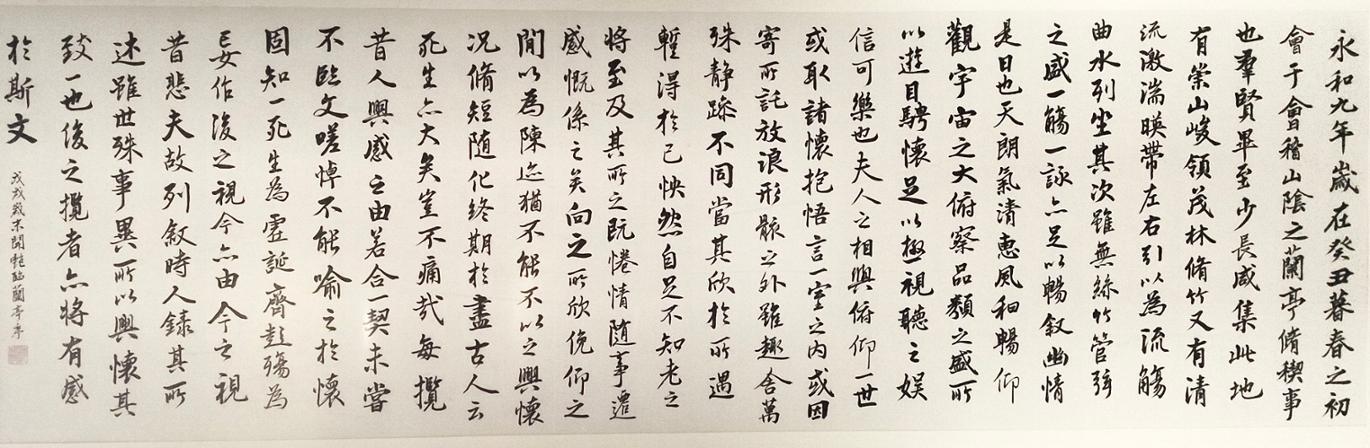 永和九年歲在癸丑暮春之初
會于會稽山陰之蘭亭脩稧事
也羣賢畢至少長咸集此地
有崇山峻領茂林脩竹又有清
流激湍暎帶左右引以為流觴
曲水列坐其次雖無絲竹管弦
之盛一觴一詠亦足以暢敘幽情
是日也天朗氣清惠風和暢仰
觀宇宙之大俯察品類之盛所
以遊目騁懷足以極視聽之娛
信可樂也夫人之相與俯仰一世
或取諸懷抱悟言一室之內或因
寄所託放浪形骸之外雖趣舍萬
殊靜躁不同當其欣於所遇
暫得於己怏然自足不知老之
將至及其所之既惓情隨事遷
感慨係之矣向之所欣俛仰之
閒以為陳迹猶不能不以之興懷
況脩短隨化終期於盡古人云
死生亦大矣豈不痛哉每攬
昔人興感之由若合一契未嘗
不臨文嗟悼不能喻之於懷
固知一死生為虛誕齊彭殤為
妄作後之視今亦由今之視
昔悲夫故列敘時人錄其所
述雖世殊事異所以興懷其
致一也後之攬者亦將有感
於斯文
戊戌歲末開艷臨蘭亭序